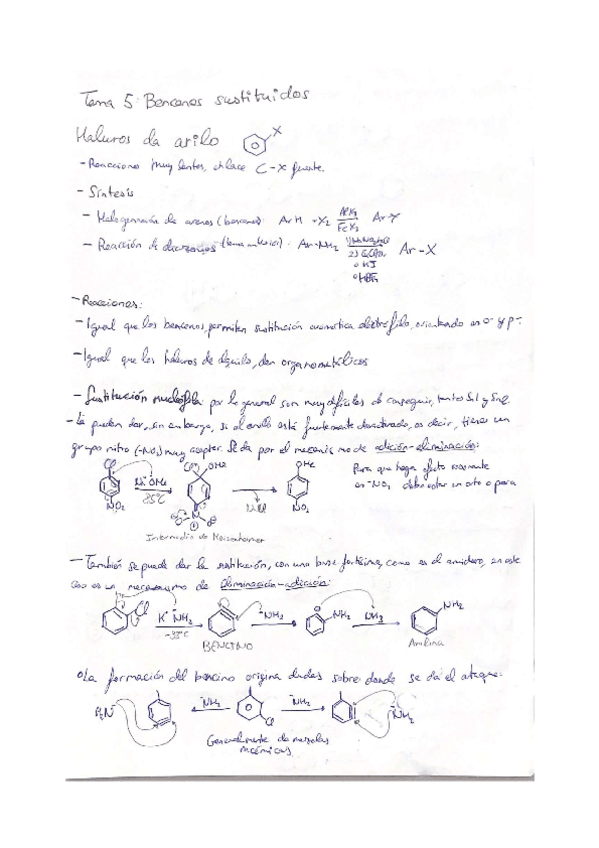 Tema 5: Bencenos sustituidos
Haluros de arilo
X
- Reacciones muy lentas, enlace C-X fuerte.
- Síntesis
- Halogenación de arenos (benceno): ArH + X2 FeX3 Ar-X
- Reacción de diazonios : Ar-NH2 Ar-X
- Reacciones:
- Igual que los bencenos, permiten sustitución aromática electrófila, orientando en o- y p-.
- Igual que los haluros de alquilo, dan organometálicos
- Sustitución nucleófila: por lo general son muy difíciles de conseguir, tanto SN1 y SN2.
- Se pueden dar, sin embargo, si el anillo está fuertemente desactivado, es decir, tienes un
grupo nitro (-NO2) muy aceptor. Se da por el mecanismo de adición-eliminación:
Cl NaOMe 85°C NO2 Cl OMe OMe NO2
Para que haga efecto resonante
en -NO2 debe estar en orto o para
Intermedio de Meisenheimer
- También se puede dar la sustitución, con una base fortísima, como es el amiduro, en este
caso es un mecanismo de eliminación-adición:
Cl K+ -NH2 -33°C -NH2 NH2 NH3 NH2
BENCINO Anilina
La formación del bencino origina dudas sobre donde se da el ataque:
H2N- -NH2 Cl -NH2 -NH2
Generalmente da mezclas
racémicas